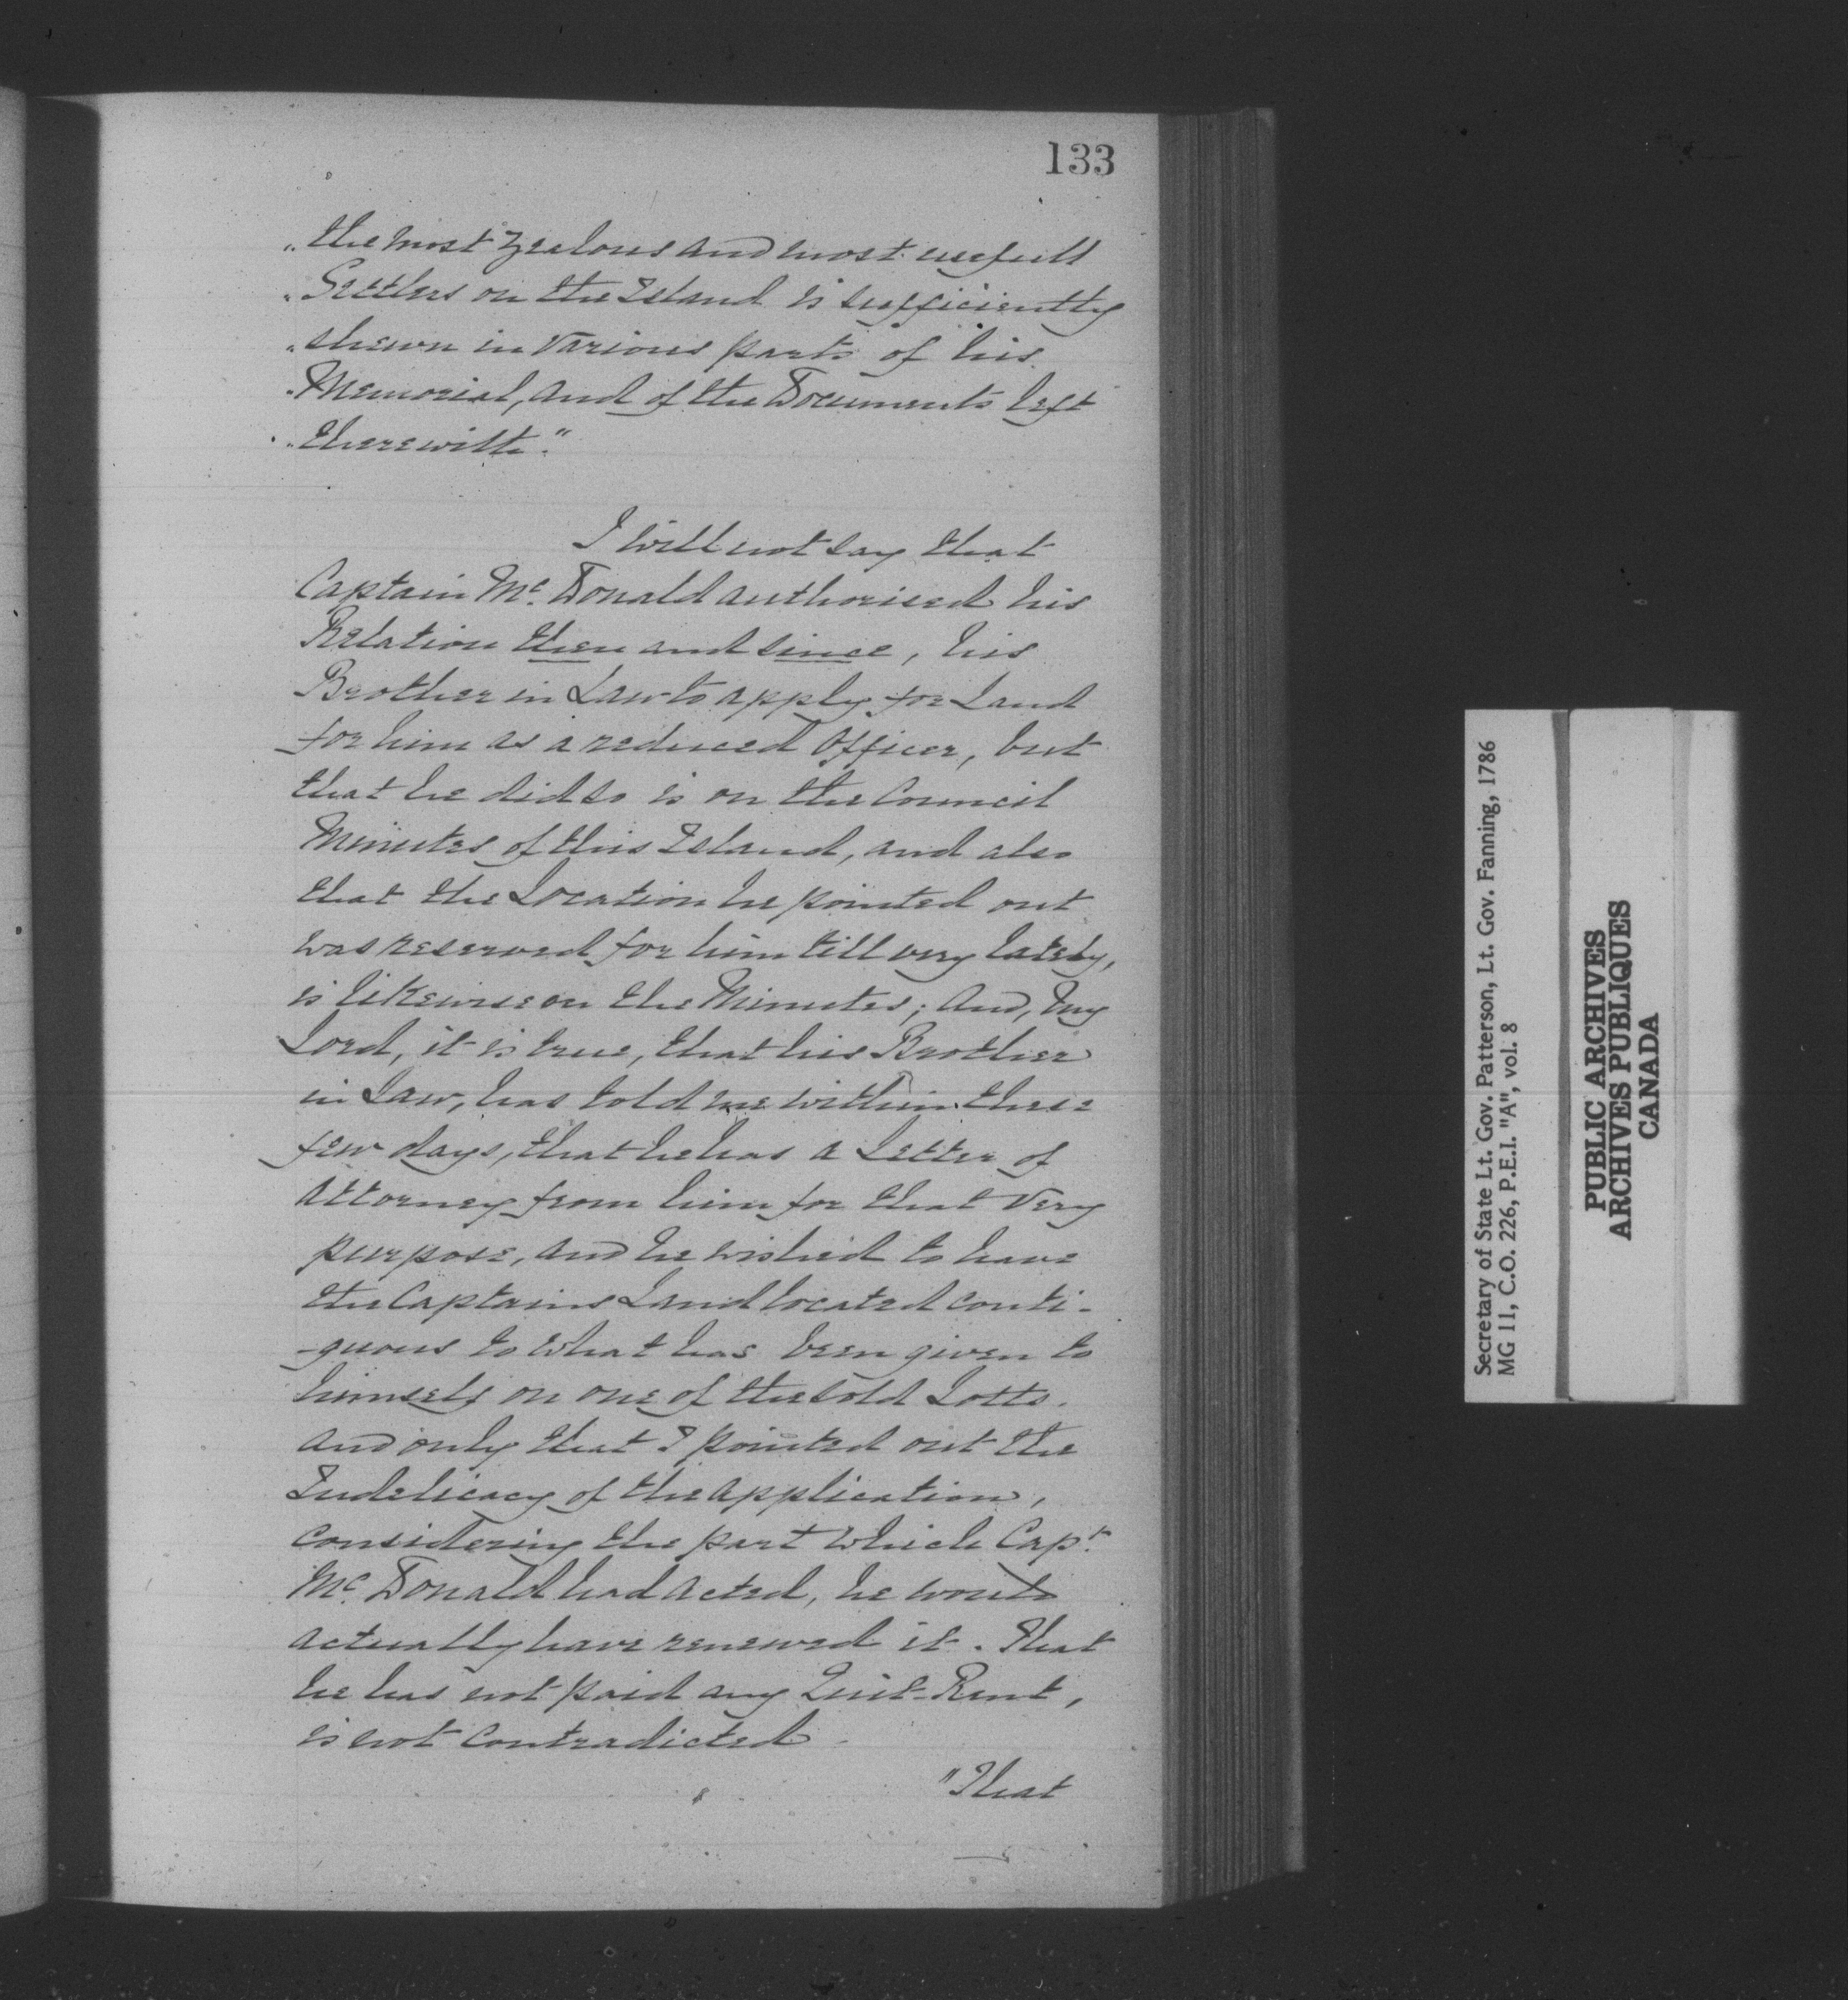 133
"the most Zealous and most usefull
"Settlers on the Island is sufficiently
"shewn in various parts of his
"Memorial, and of the Documents left
"therewith."
I will not say that
Captain Mc. Donald authorised his
Relation then and since, his
Brother in Law to apply for Land
for him as a reduced Officer, but
that he did so is on the Council
Minutes of this Island, and also
that the Location he pointed out
was reserved for him till very lately,
is likewise on the Minutes; And, my
Lord, it is true, that his Brother
in Law, has told me within these
few days, that he has a Letter of
Attorney from him for that very
purpose, and he wished to have
the Captains Land located conti-
-guous to what has been given to
himself on one of the sold Lotts.
And only that I pointed out the
Indelicacy of the Application,
considering the part which Capt.
Mc. Donald had acted, he would
actually have renewed it. That
he has not paid any Quit-Rent,
is not contradicted.
"That
Secretary of State Lt. Gov. Patterson, Lt. Gov. Fanning, 1786
MG 11, C.O. 226, P.E.I. "A", vol. 8
PUBLIC ARCHIVES
ARCHIVES PUBLIQUES
CANADA